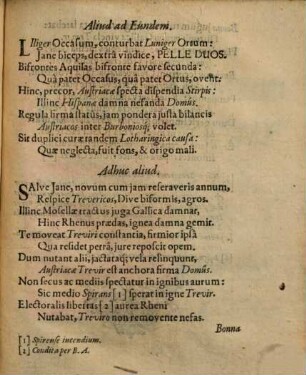 Aliud ad Eundem.
LIliger Occasum, conturbat Luniger Ortum:
Jane biceps, dextrâ vindice, PELLE DUOS.
Bifrontes Aquilas bifronte favore secunda:
Quà patet Occasus, quà patet Ortus, ovent.
Hinc, precor, Austriacæ specta dispendia Stirpis:
Illinc Hispanæ damna nefanda Domûs.
Regula firma statûs, jam pondera justa bilancis
Austriacos inter Borboniosq; volet.
Sit duplici curæ tandem Lotharingica causa:
Quæ neglecta, fuit fons, & origo mali.
Adhuc aliud.
SAlve Jane, novum cum jam reseraveris annum,
Respice Trevericos, Dive biformis, agros.
Illinc Mosellæ tractus juga Gallica damnat,
Hinc Rhenus prædas, ignea damna gemit.
Te moveat Treviri constantia, firmior ipsâ
Quâ residet petrâ, jure reposcit opem.
Dum nutant alii, jactataq; vela relinquunt,
Austriacæ Treviro est anchora firma Domûs.
Non secus ac mediis spectatur in ignibus aurum:
Sic medio Spirans [1] sperat in igne Trevir.
Electoralis libertas [2] aurea Rheni
Nutabat, Treviro non removente nefas.
Bonna
[1] Spirense incendium.
[2] Condita per B. A.